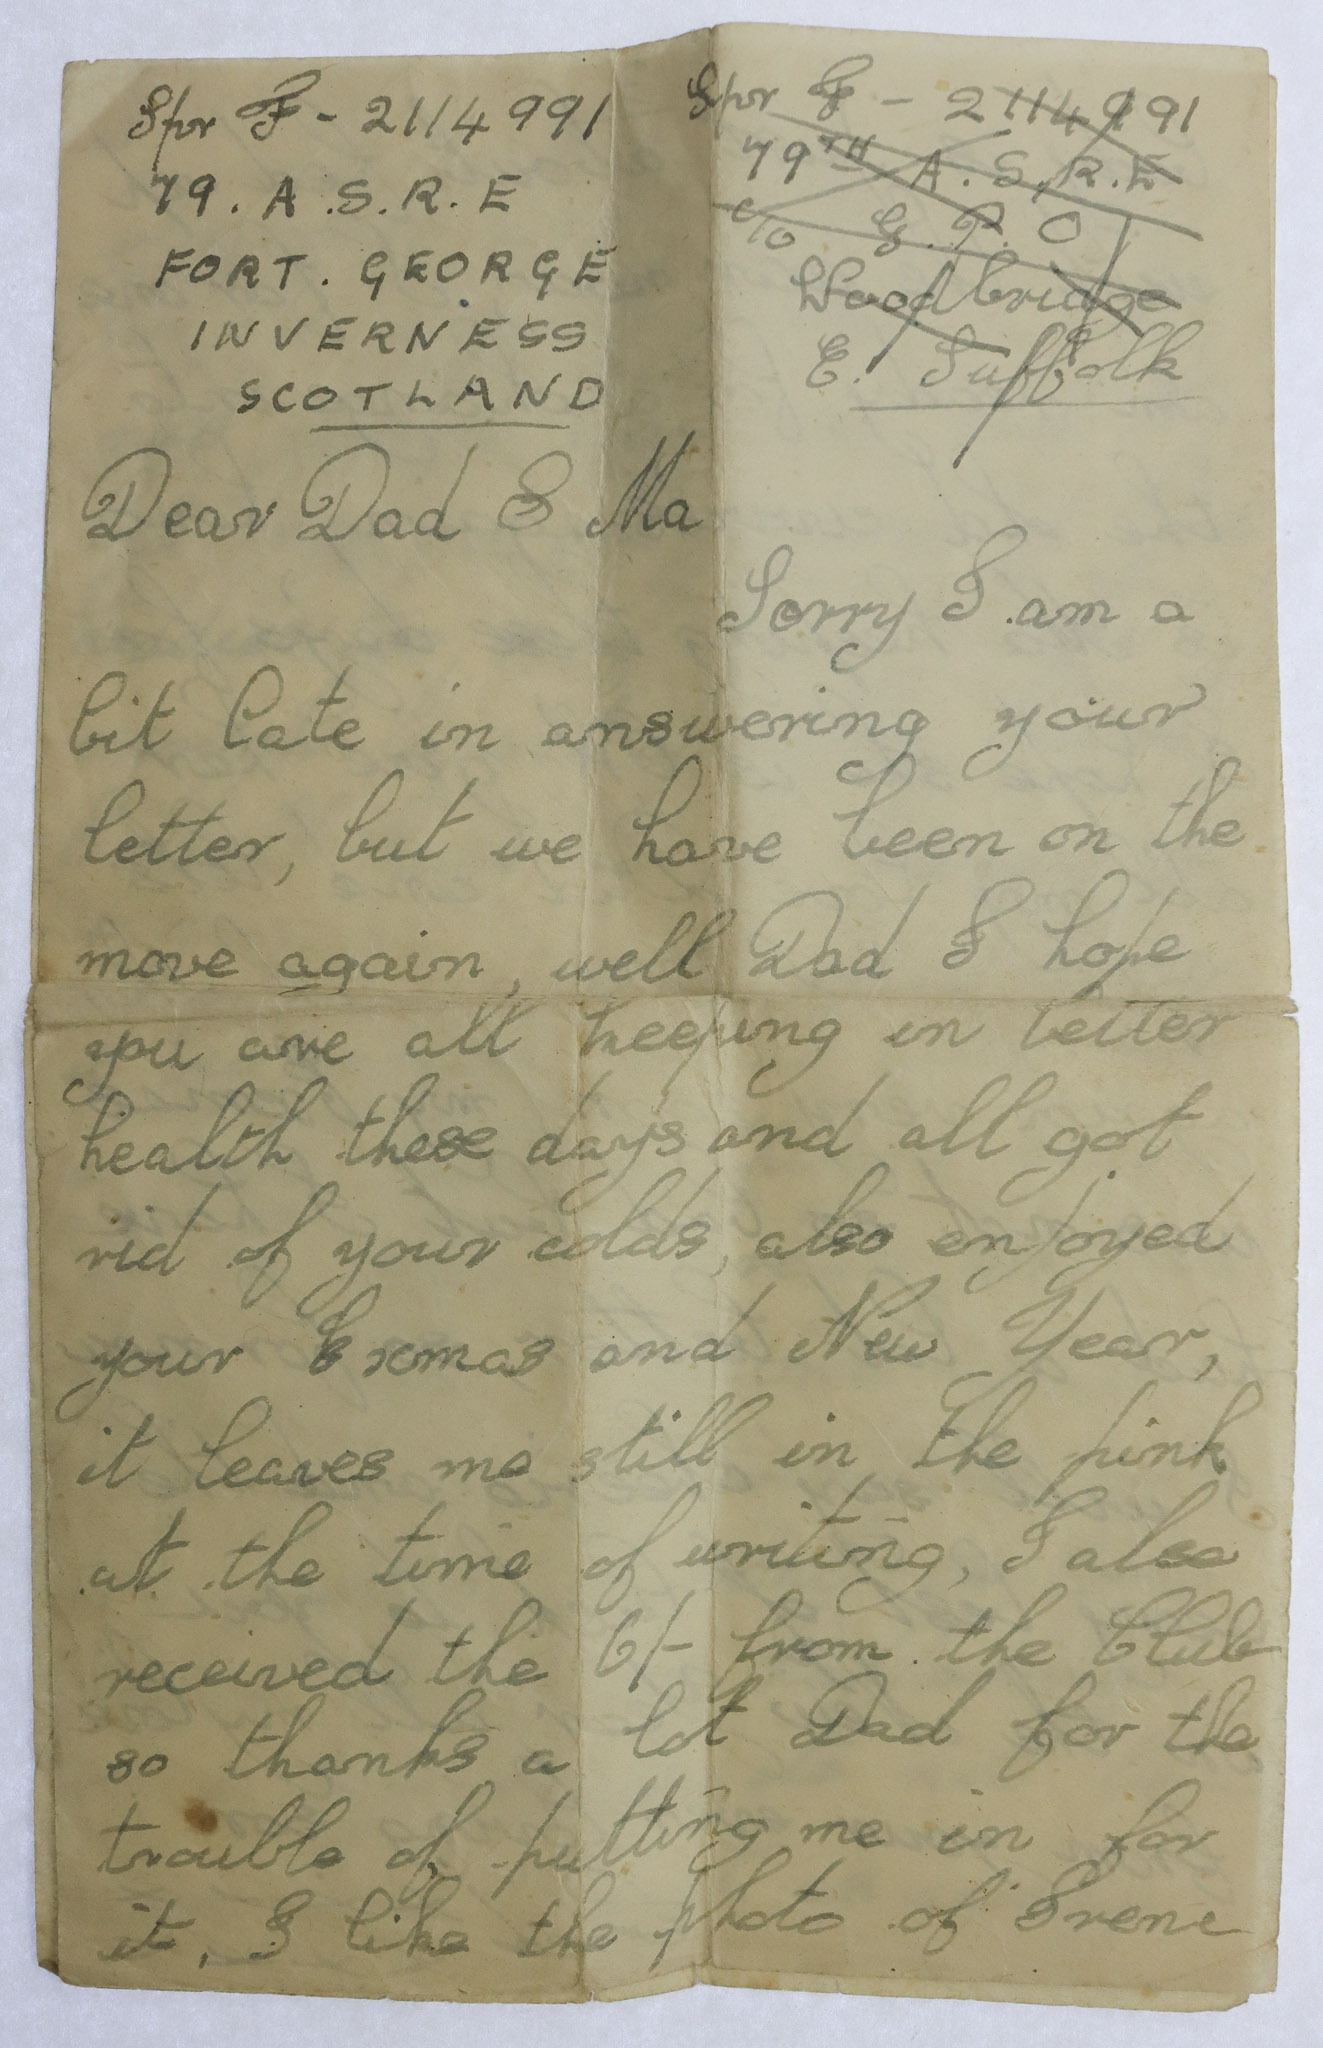 Spr F - 2114991
79. A.S.R.E
FORT. GEORGE
INVERNESS
SCOTLAND
Spr F - 2114991
79TH A.S.R.E
c/o G.P.O
Woodbridge
E. Suffolk
Dear Dad & Ma
Sorry I am a
bit late in answering your
letter, but we have been on the
move again, well Dad I hope
you are all keeping in better
health these days and all got
rid of your colds, also enjoyed
your Exmas and New Year,
it leaves me still in the pink
at the time of writing, I also
received the 6/- from the Club
so thanks a lot Dad for the
trouble of putting me in for
it, I like the photo of Irene